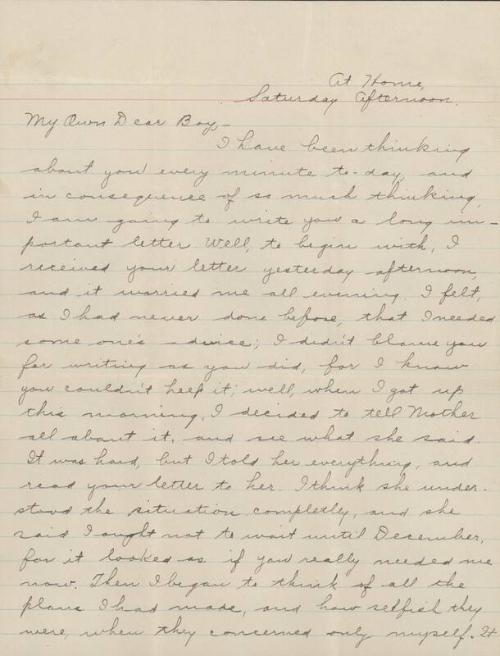 At Home,
Saturday Afternoon.
My Own Dear Boy,-
I have been thinking
about you every minute to-day, and
in consequence of so much thinking,
I am going to write you a long im-
portant letter. Well, to begin with, I
received your letter yesterday afternoon,
and it worried me all evening. I felt,
as I had never done before, that I needed
some one's advice; I didn't blame you
for writing as you did, for I know
you couldn't help it; well, when I got up
this morning, I decided to tell Mother
all about it, and see what she said.
It was hard, but I told her everything, and
read your letter to her. I think she under-
stood the situation completely, and she
said I ought not to wait until December,
for it looked as if you really needed me
now. Then I began to think of all the
plans I had made, and how selfish they
were, when they concerned only myself. It